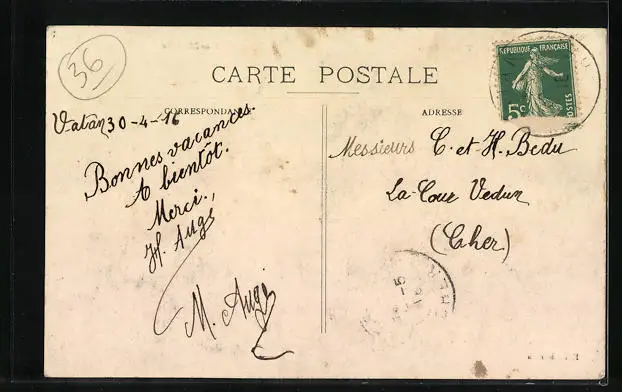 36
CARTE POSTALE
REPUBLIQUE FRANÇAISE
5c
POSTES
CORRESPONDANCE
ADRESSE
Vatan 30-4-16
Bonnes vacances.
A bientôt.
Merci.,
H. Augé
M. Augé
Messieurs C. et H. Bedu
La Cour Vedun
(Cher)